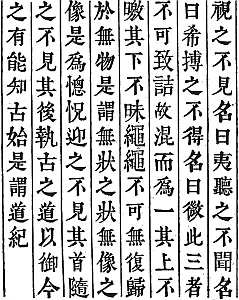 視之不見名曰夷聽之不聞名
曰希博之不得名曰微此三者
不可致詰故混而爲一其上不
皦其下不昧繩繩不可無復歸
於無物是謂無狀之狀無像之
像是爲惚怳迎之不見其首隨
之不見其後執古之道以御今
之有能知古始是謂道紀